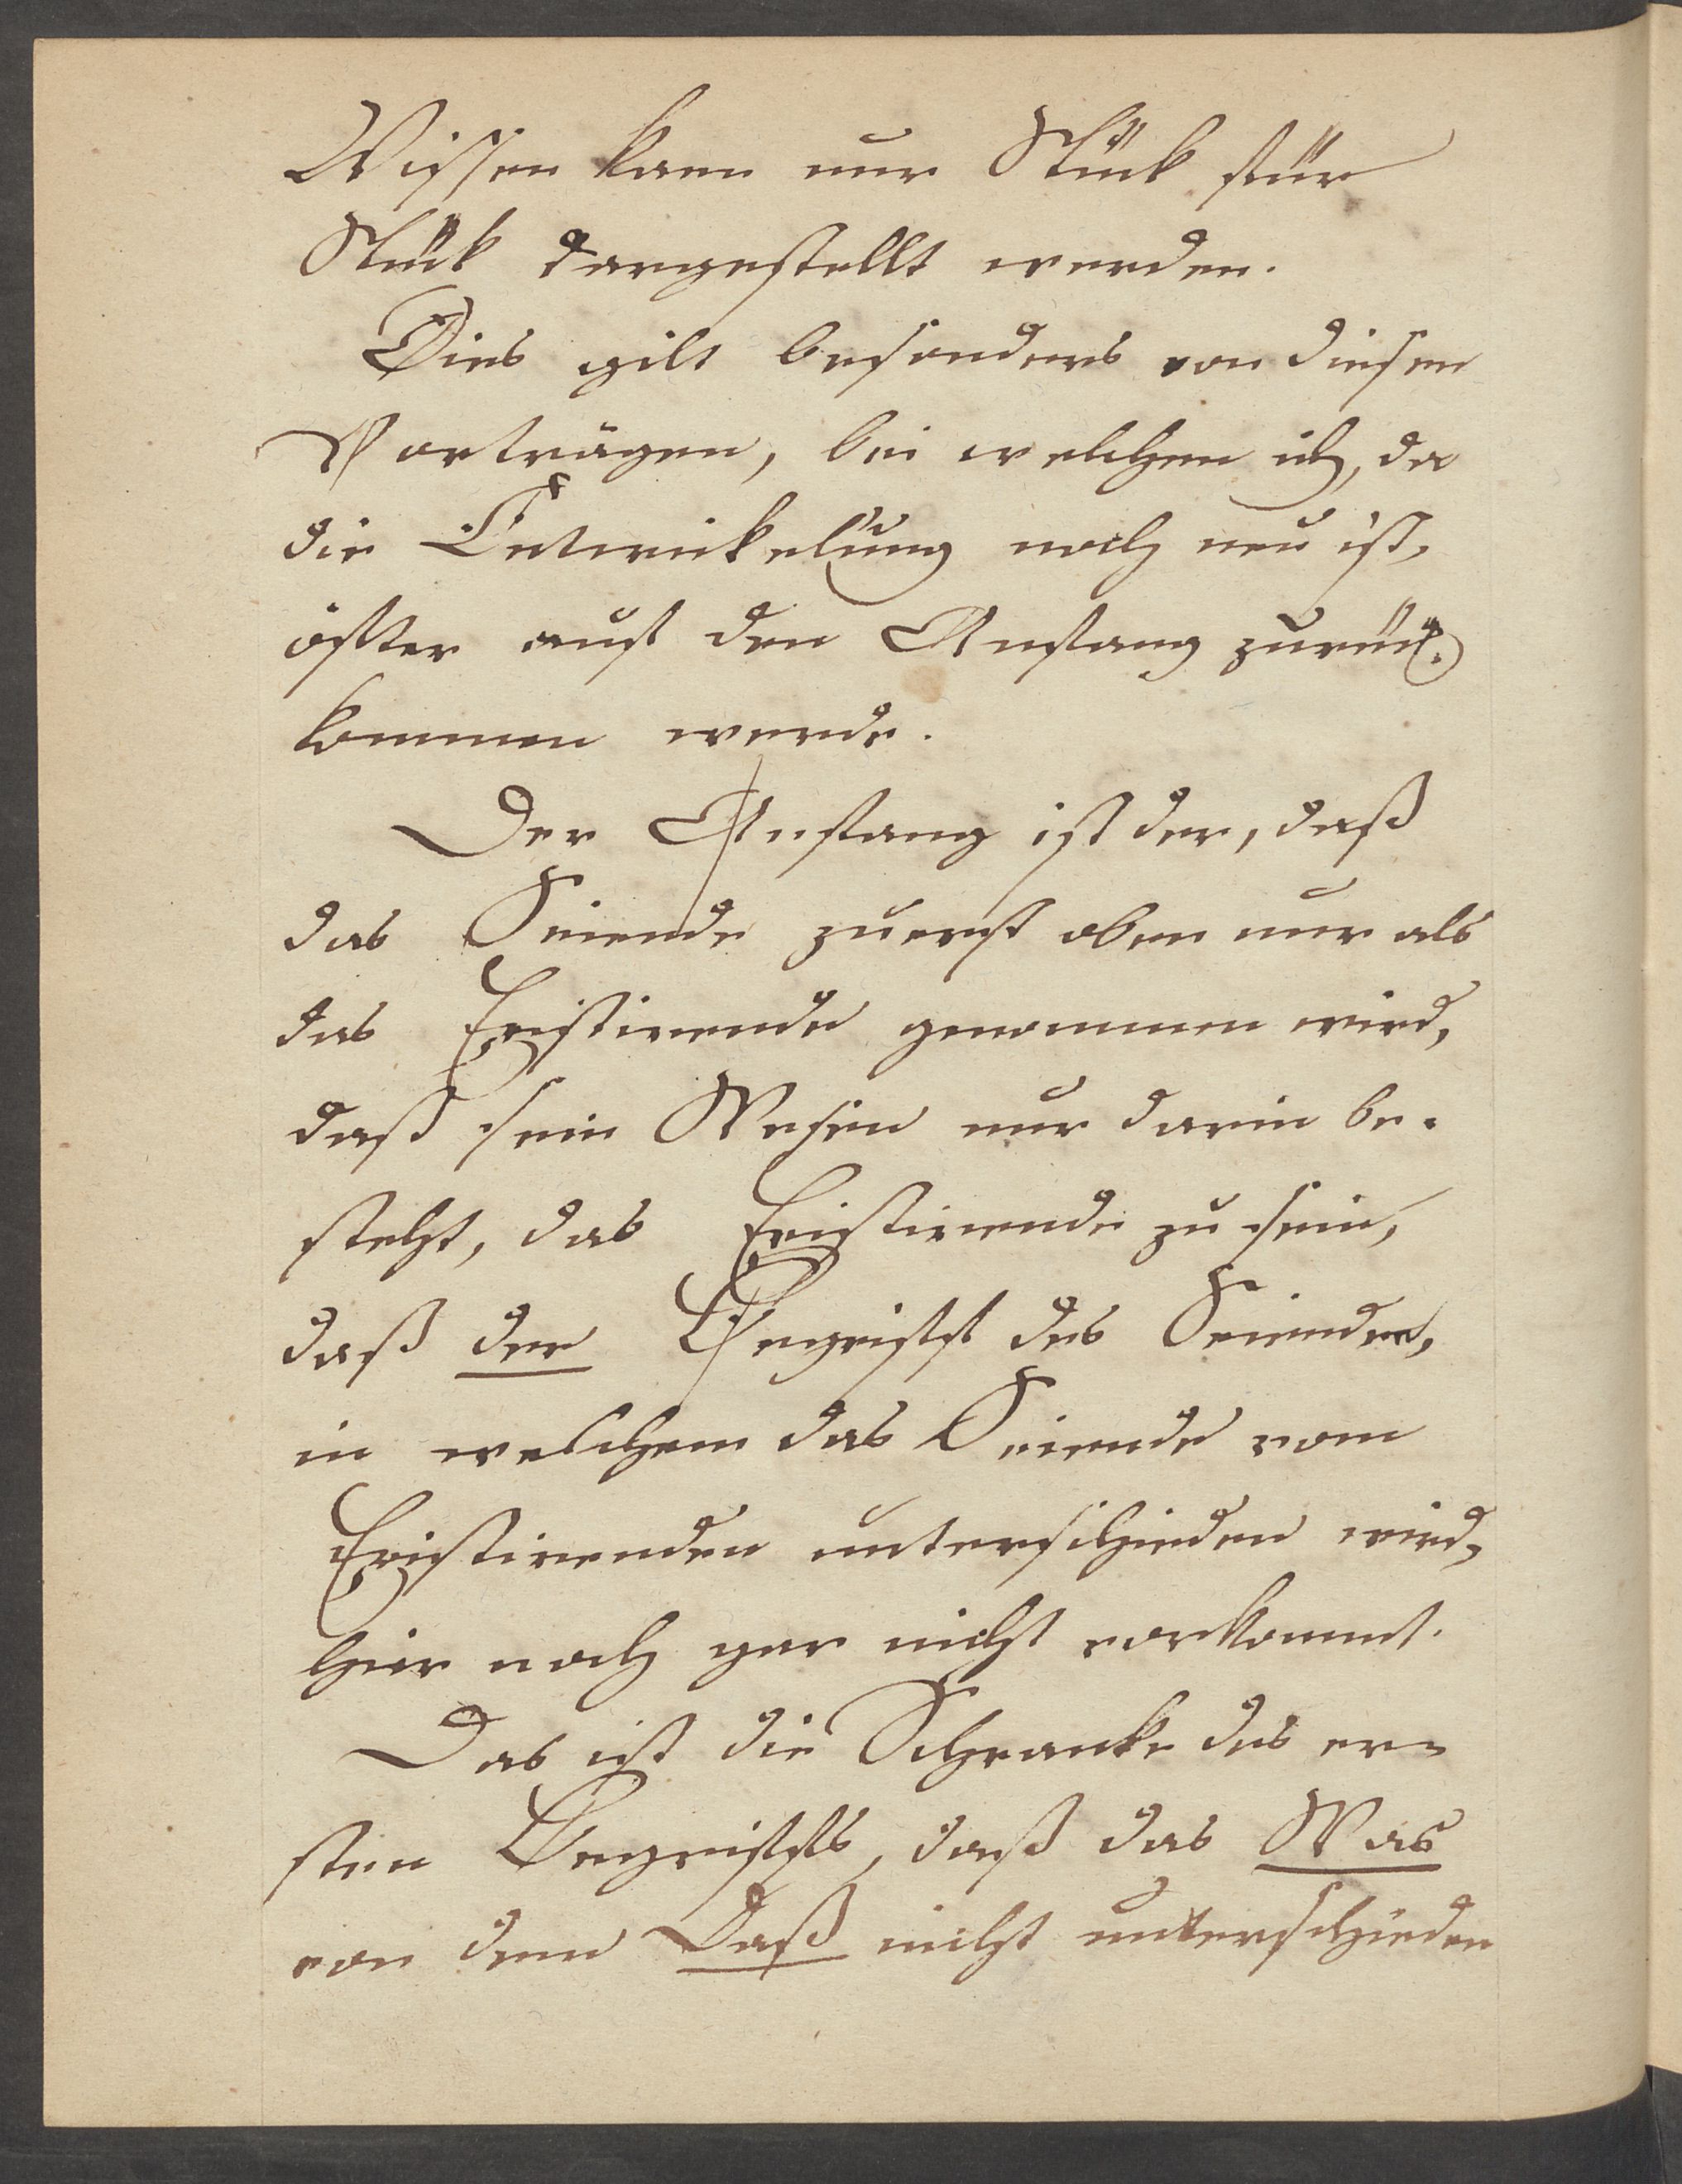 Wissen kann nur Stück für
Stück dargestellt werden.
Dies gilt besonders von diesen
Vorträgen, bei welchen ich, da
die Entwickelung noch neu ist,
öfter auf den Anfang zurück-
kommen werde.
Der Anfang ist der, daß
das Seiende zuerst eben nur als
das Existirende genommen wird,
daß sein Wesen nur darin be-
steht, das Existirende zu sein,
daß der Begriff des Seienden,
in welchem das Seiende vom
Existirenden unterschieden wird,
hier noch gar nicht vorkommt.
Das ist die Schranke des er-
sten Begriffs, daß das Was
von dem Daß nicht unterschieden